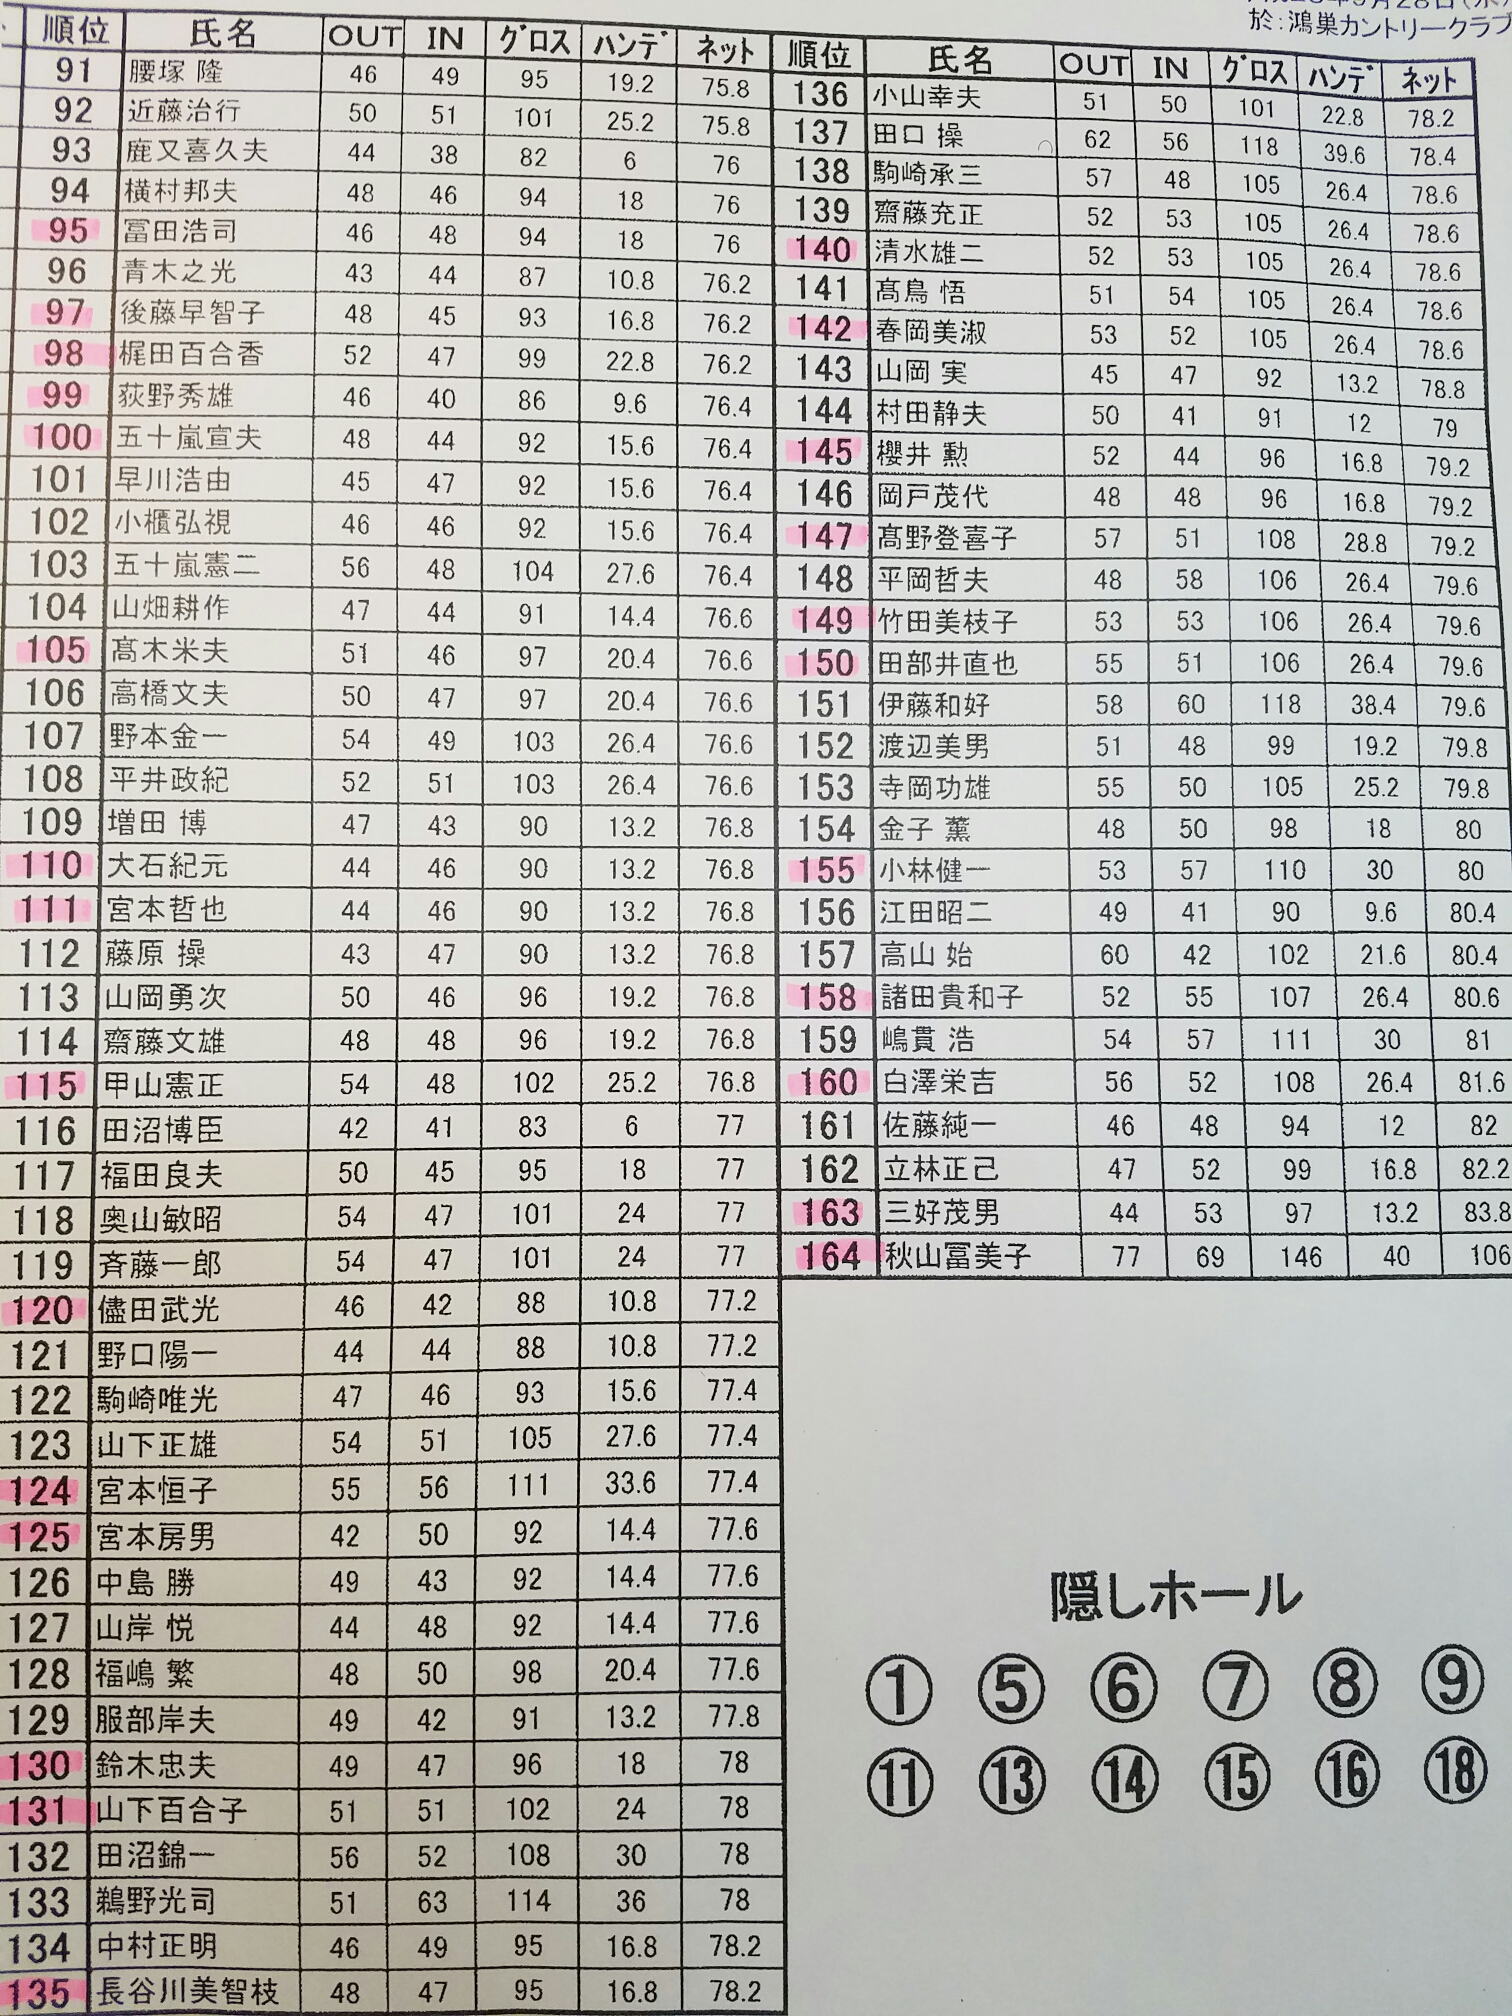 於:鴻巣カントリークラブ
順位 氏名 OUT IN グロス ハンデ ネット
91 腰塚 隆 46 49 95 19.2 75.8
92 近藤治行 50 51 101 25.2 75.8
93 鹿又喜久夫 44 38 82 6 76
94 横村邦夫 48 46 94 18 76
95 冨田浩司 46 48 94 18 76
96 青木之光 43 44 87 10.8 76.2
97 後藤早智子 48 45 93 16.8 76.2
98 梶田百合香 52 47 99 22.8 76.2
99 荻野秀雄 46 40 86 9.6 76.4
100 五十嵐宣夫 48 44 92 15.6 76.4
101 早川浩由 45 47 92 15.6 76.4
102 小櫃弘視 46 46 92 15.6 76.4
103 五十嵐憲二 56 48 104 27.6 76.4
104 山畑耕作 47 44 91 14.4 76.6
105 髙木米夫 51 46 97 20.4 76.6
106 高橋文夫 50 47 97 20.4 76.6
107 野本金一 54 49 103 26.4 76.6
108 平井政紀 52 51 103 26.4 76.6
109 増田 博 47 43 90 13.2 76.8
110 大石紀元 44 46 90 13.2 76.8
111 宮本哲也 44 46 90 13.2 76.8
112 藤原 操 43 47 90 13.2 76.8
113 山岡勇次 50 46 96 19.2 76.8
114 齋藤文雄 48 48 96 19.2 76.8
115 甲山憲正 54 48 102 25.2 76.8
116 田沼博臣 42 41 83 6 77
117 福田良夫 50 45 95 18 77
118 奥山敏昭 54 47 101 24 77
119 斉藤一郎 54 47 101 24 77
120 儘田武光 46 42 88 10.8 77.2
121 野口陽一 44 44 88 10.8 77.2
122 駒崎唯光 47 46 93 15.6 77.4
123 山下正雄 54 51 105 27.6 77.4
124 宮本恒子 55 56 111 33.6 77.4
125 宮本房男 42 50 92 14.4 77.6
126 中島 勝 49 43 92 14.4 77.6
127 山岸 悦 44 48 92 14.4 77.6
128 福嶋 繁 48 50 98 20.4 77.6
129 服部岸夫 49 42 91 13.2 77.8
130 鈴木忠夫 49 47 96 18 78
131 山下百合子 51 51 102 24 78
132 田沼錦一 56 52 108 30 78
133 鵜野光司 51 63 114 36 78
134 中村正明 46 49 95 16.8 78.2
135 長谷川美智枝 48 47 95 16.8 78.2
順位 氏名 OUT IN グロス ハンデ ネット
136 小山幸夫 51 50 101 22.8 78.2
137 田口 操 62 56 118 39.6 78.4
138 駒崎承三 57 48 105 26.4 78.6
139 齋藤充正 52 53 105 26.4 78.6
140 清水雄二 52 53 105 26.4 78.6
141 髙鳥 悟 51 54 105 26.4 78.6
142 春岡美淑 53 52 105 26.4 78.6
143 山岡 実 45 47 92 13.2 78.8
144 村田静夫 50 41 91 12 79
145 櫻井 勲 52 44 96 16.8 79.2
146 岡戸茂代 48 48 96 16.8 79.2
147 髙野登喜子 57 51 108 28.8 79.2
148 平岡哲夫 48 58 106 26.4 79.6
149 竹田美枝子 53 53 106 26.4 79.6
150 田部井直也 55 51 106 26.4 79.6
151 伊藤和好 58 60 118 38.4 79.6
152 渡辺美男 51 48 99 19.2 79.8
153 寺岡功雄 55 50 105 25.2 79.8
154 金子 薫 48 50 98 18 80
155 小林健一 53 57 110 30 80
156 江田昭二 49 41 90 9.6 80.4
157 高山 始 60 42 102 21.6 80.4
158 諸田貴和子 52 55 107 26.4 80.6
159 嶋貫 浩 54 57 111 30 81
160 白澤栄吉 56 52 108 26.4 81.6
161 佐藤純一 46 48 94 12 82
162 立林正己 47 52 99 16.8 82.2
163 三好茂男 44 53 97 13.2 83.8
164 秋山冨美子 77 69 146 40 106
隠しホール
① ⑤ ⑥ ⑦ ⑧ ⑨
⑪ ⑬ ⑭ ⑮ ⑯ ⑱